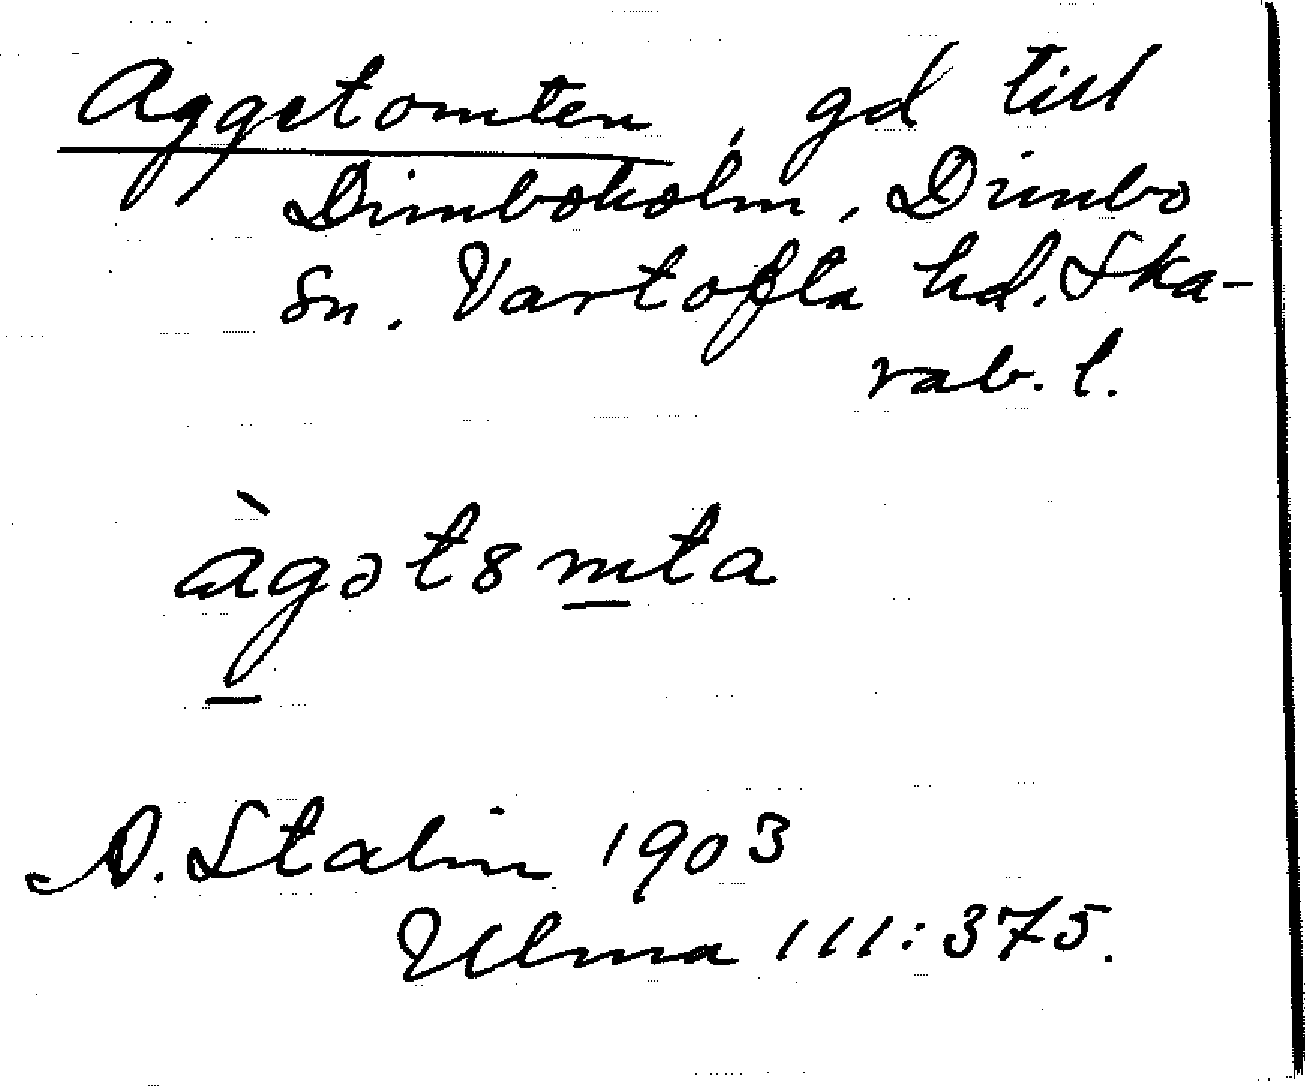 Aggetomten, gd till
Dimboholm, Dimbo
sn. Vartofta hd. Ska-
rab. l.
àgət8mta
D. Stalin 1903
Ulma 111:375.